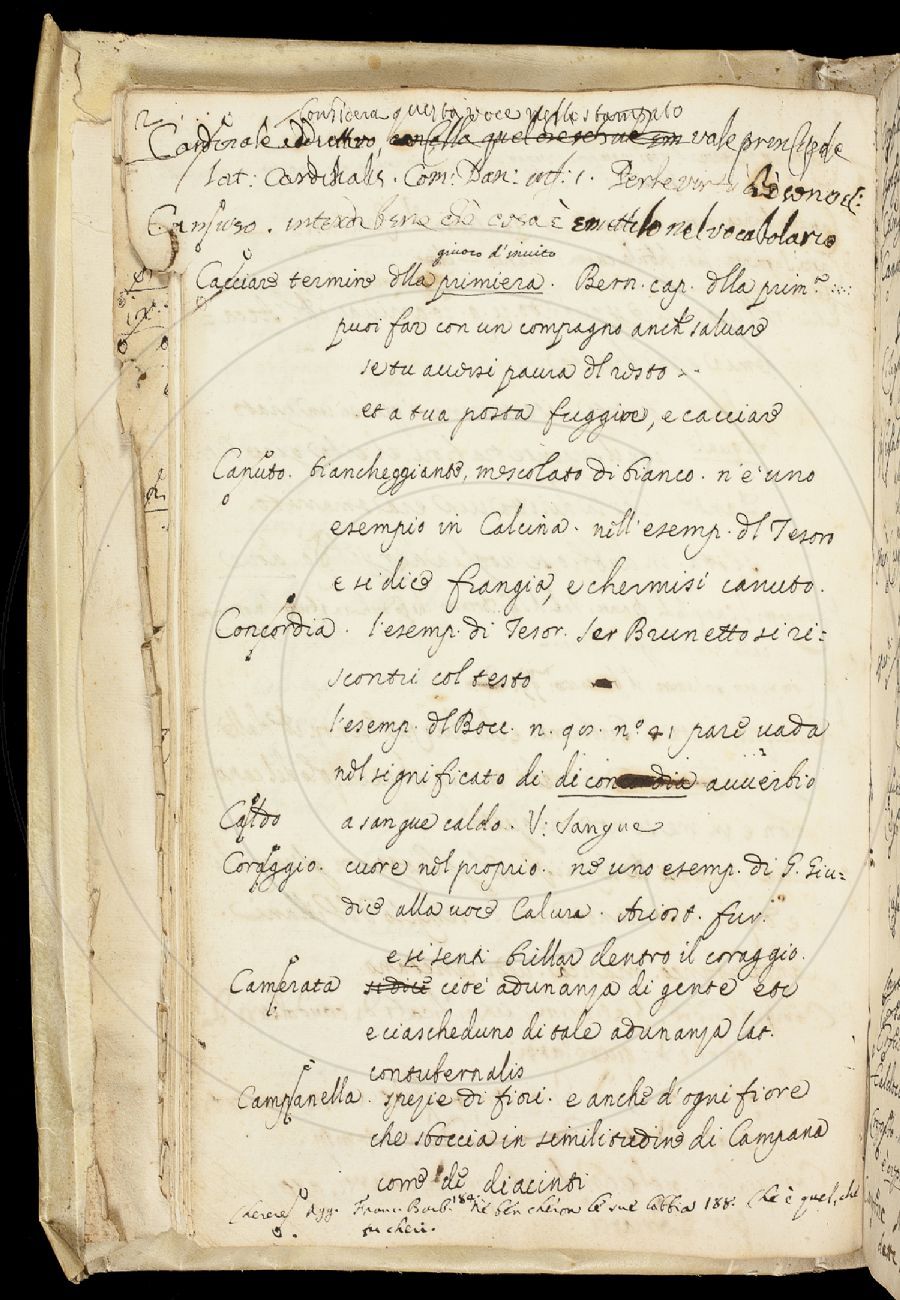 2
Considera questa voce nello stampato
Cardinale addiettivo, vale principale
lat: Cardinalis. Com: Dan: inf: 1. Perseverò
Canfuso. intendi bene che cosa è e mettilo nel vocabolario
giuoco d'invito
Cacciare termine dlla primiera. Bern. cap. dlla prim.ª
puoi far con un compagno anch salvare
se tu avessi paura dl resto
et a tua posta fuggire, e cacciare
Canuto. biancheggiante, mescolato di bianco. n'è uno
esempio in Calcina. nell'esemp. dl Tesoro
e si dice frangia, e chermisi canuto.
Concordia. l'esemp. di Tesor. Ser Brunetto si ri=
scontri col testo
l'esemp. dl Bocc. n. 98. nº 41 pare vada
nel significato di di concordia avverbio
Caldo a sangue caldo. V: Sangue
Coraggio. cuore nel proprio. ne uno esemp. di G. Giu=
dice alla voce Calura. Ariost. fur.
e si senti brillar dentro il coraggio.
Camerata si dice cioè adunanza di gente etc
e ciascheduno di tale adunanza lat.
contubernalis
Campanella. spezie di fiori. e anche d'ogni fiore
che sboccia in similitudine di Campana
come de diacinti
Cherere Agg. Franc. Barb. 188. Ne ben cheron le sue labbia 188. Che è quel, che
cheri.